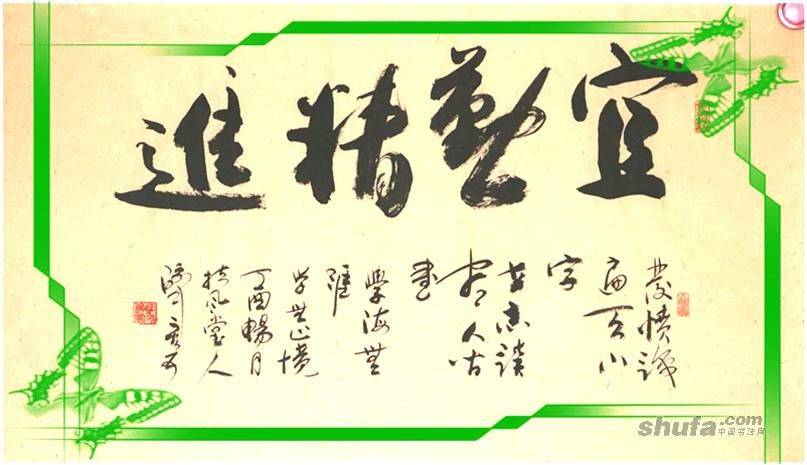 宜勤精進
發憤識
遍天下
字
志讀
盡人
書
學海無
涯
学無止境
丁酉暢月
風堂人
shufa.com
中国书法网